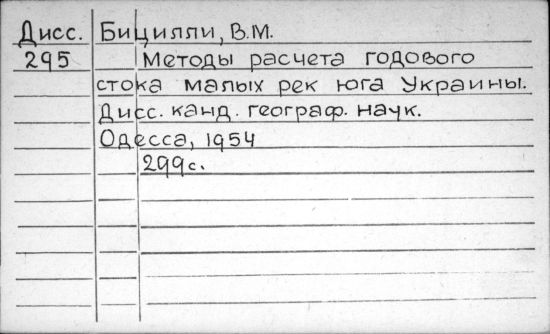 Дисс. Бицилли, В.М.
295 Методы расчета годового
стока малых рек юга Украины.
Дисс. канд. географ. наук.
Одесса, 1954
299с.